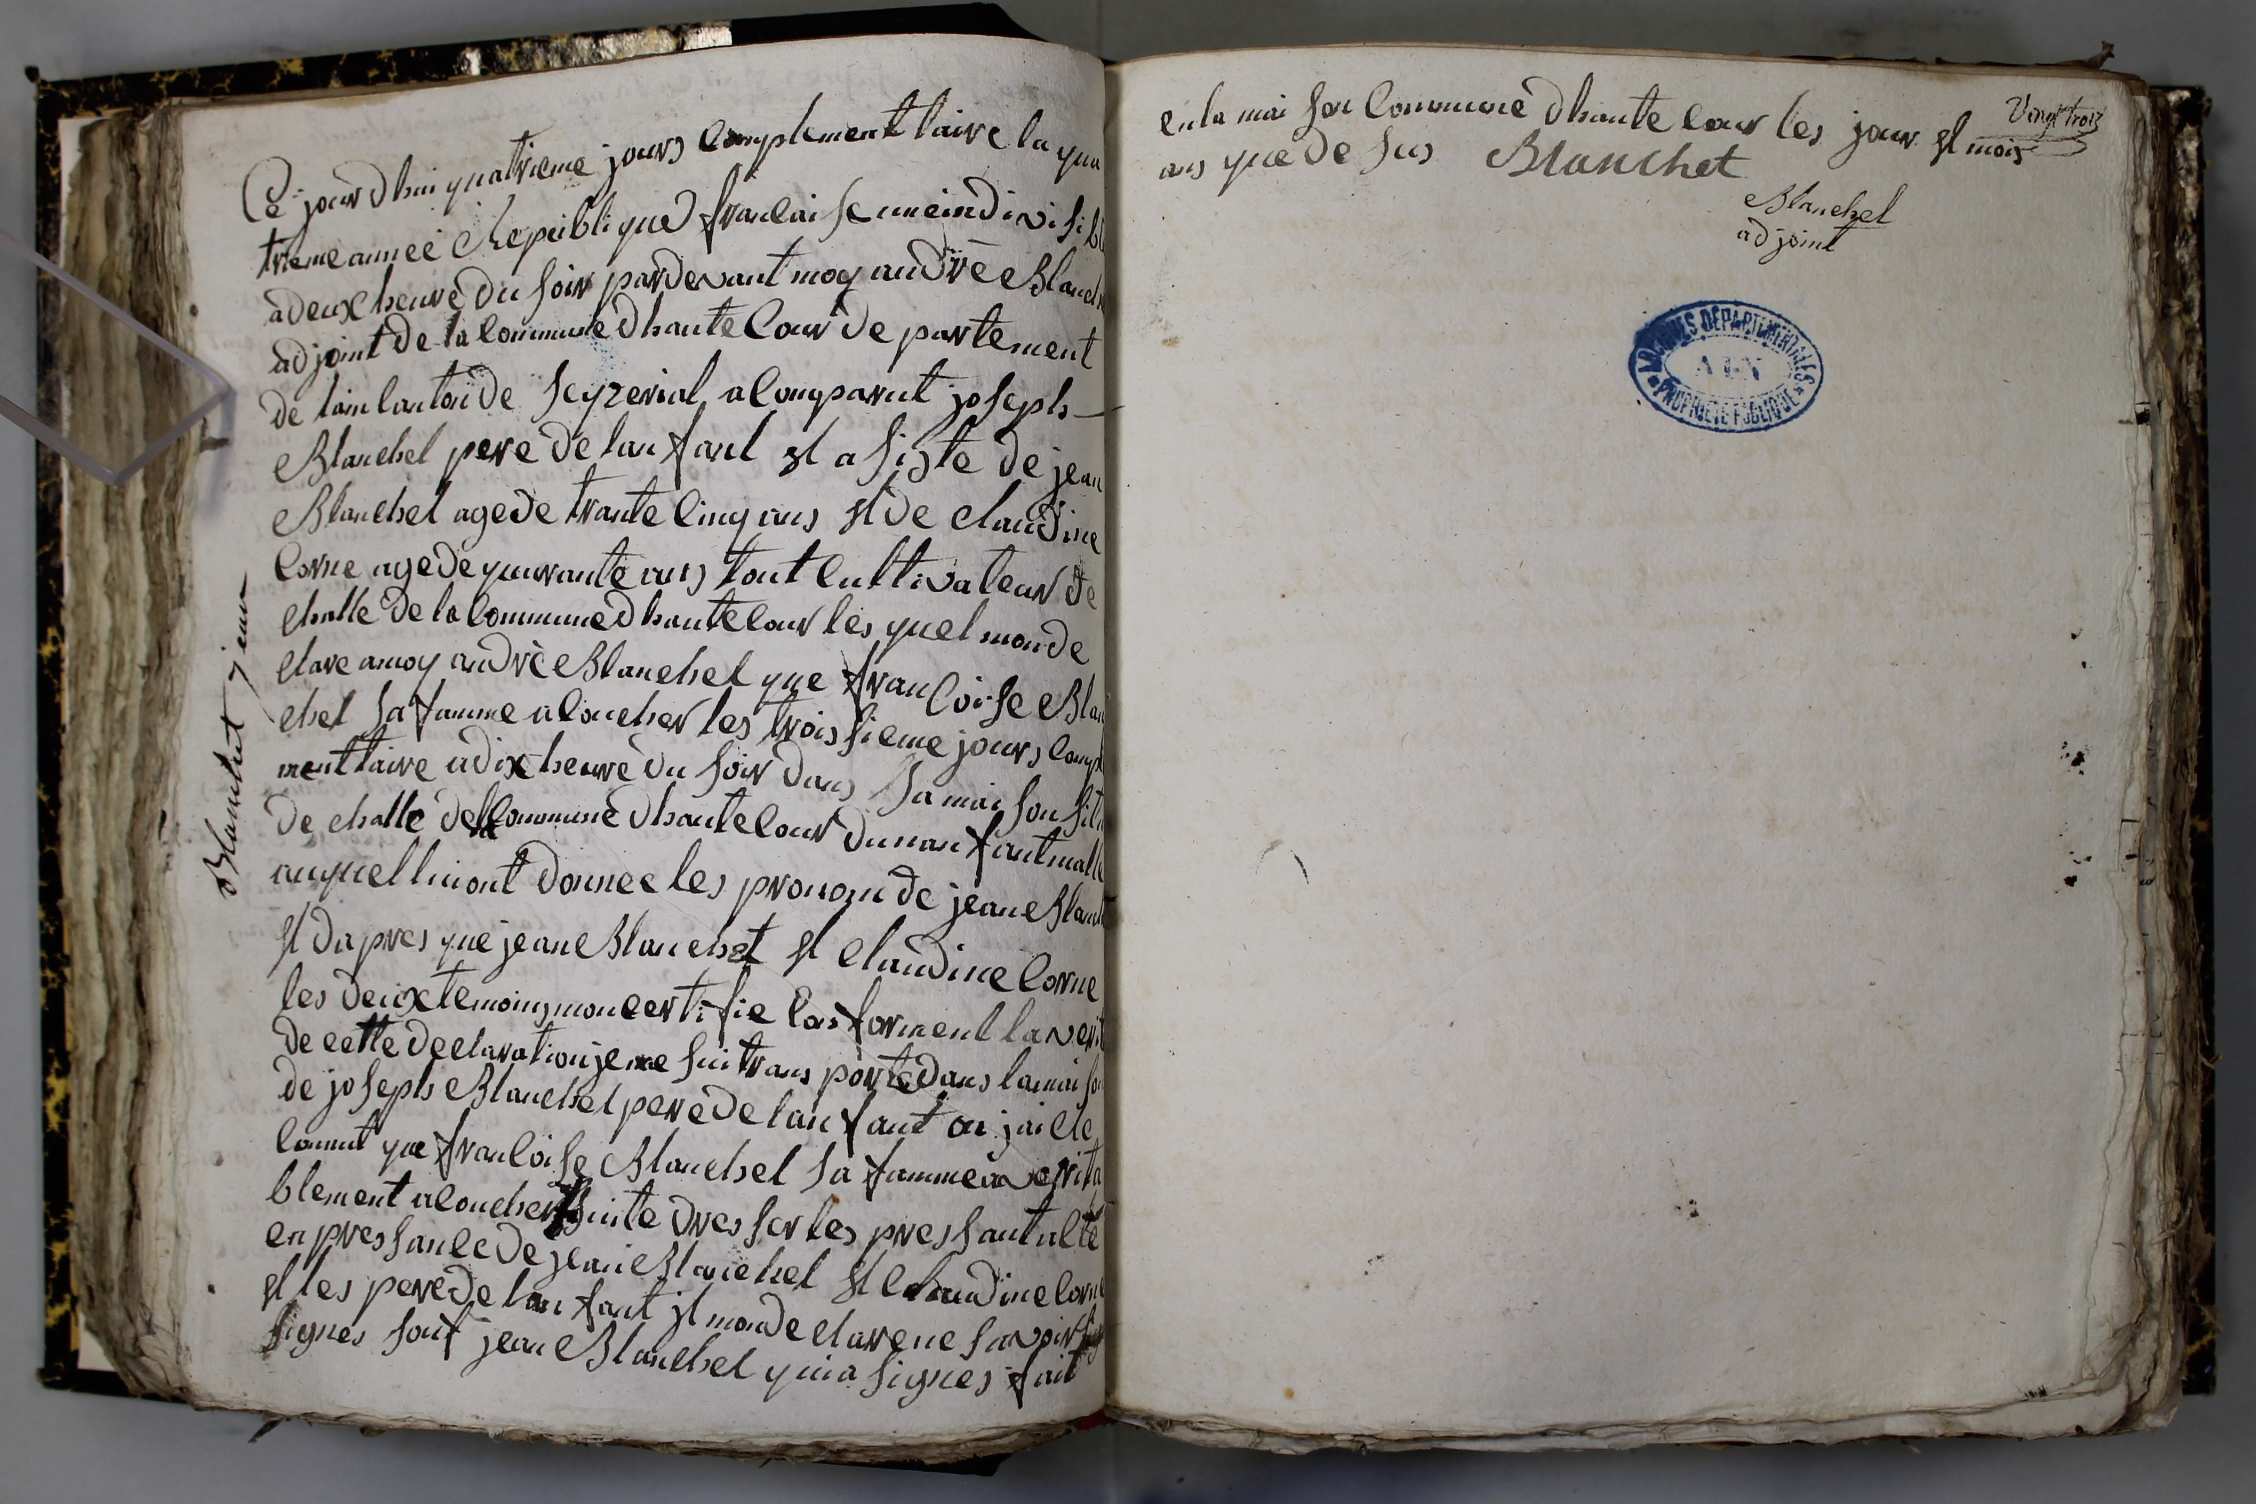 Blanchet jean
Ce jourdhui quatrieme jours complementtaire la qua
trieme annee Republique francaise une indivisible
a deux heure du soir pardevant moy andrè Blanch
adjoint de la Commune dhaute Cour departement
de lain Canton de seyzerial a Comparut joseph
Blanchet pere de lanfant et asisté de jean
Blanchet age de trante Cinq ans et de claudine
Corne age de quarante ans tout Cultivateur de
challe de la Commune dhaute Cour les quel monde
clare a moy andrè Blanchet que francoise Blan
chet sa famme acoucher les troissieme jours Compl
menttaire a dix heure du soir dans sa maison sit
de challe de la Commune dhaute Cour dun anfant malle
auquel lui ont donnee les pronom de jean Blanch
et dapres que jean Blanchet et claudine Corne
les deux temoins mon certifie Conforment la verit
de cette declaration je me sui transporté dans la maison
de joseph Blanchet pere de lanfant ou jai ete
Connut que francoise Blanchet sa famme a verita
blement acoucher suite dresser les pressant acte
en pressance de jean Blanchet et claudine Corne
et les pere de lanfant jl monde clare ne savoir
signes souf jean Blanchet qui a signes fait
Vingt trois
en la maison Commune dhaute Cour les jour et mois
ans que de sus Blanchet
Blanchet
adjoint
ARCHIVES DEPARTEMENTALES
AIN
PROPRIETE PUBLIQUE